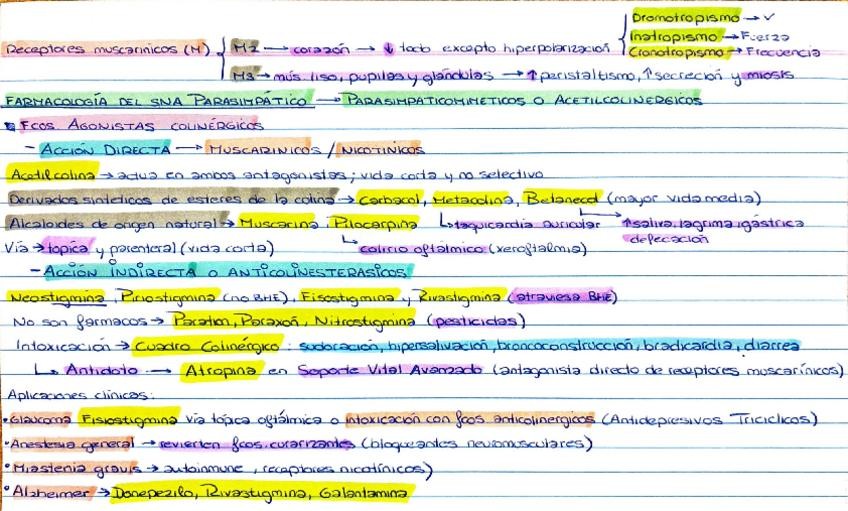 Dromotropismo → ✓
Inotropismo → Fuerza
Receptores muscarínicos (M) { M2 → corazón → ↓ todo excepto hiperpolarización { Cronotropismo → Frecuencia
M3 → mús. liso, pupilas y glándulas → ↑ peristaltismo, ↑ secreción y miosis
FARMACOLOGÍA DEL SNA PARASIMPÁTICO → PARASIMPATICOMIMÉTICOS O ACETILCOLINÉRGICOS
FCOS AGONISTAS COLINÉRGICOS
- ACCIÓN DIRECTA → MUSCARÍNICOS / NICOTÍNICOS
Acetilcolina → actua en ambos antagonistas; vida corta y no selectivo
Derivados sintéticos de esteres de la colina → Carbacol, Metacolina, Betanecol (mayor vida media)
Alcaloides de origen natural → Muscarina, Pilocarpina ↳ taquicardia auricular → ↑ saliva, lagrima, gástrica
defecación
Vía → topica y parenteral (vida corta) ↳ colirio oftálmico (xeroftalmia)
- ACCIÓN INDIRECTA O ANTICOLINESTERASICOS
Neostigmina, Piriostigmina (no BHE), Fisostigmina y Rivastigmina (atraviesa BHE)
No son farmacos → Paration, Paraxón, Nitrostigmina (pesticidas)
Intoxicación → Cuadro Colinérgico: sudoración, hipersalivación, broncoconstrucción, bradicardia, diarrea
↳ Antidoto → Atropina en Soporte Vital Avanzado (antagonista directo de receptores muscarínicos)
Aplicaciones clínicas:
• Glaucoma Fisiostigmina vía topica oftálmica o intoxicación con fcos anticolinergicos (Antidepresivos Triciclicos)
• Anestesia general → revierten fcos. curarizantes (bloqueantes neuromusculares)
• Miastenia gravis → autoinmune, receptores nicotínicos)
• Alzheimer → Donepezilo, Rivastigmina, Galantamina